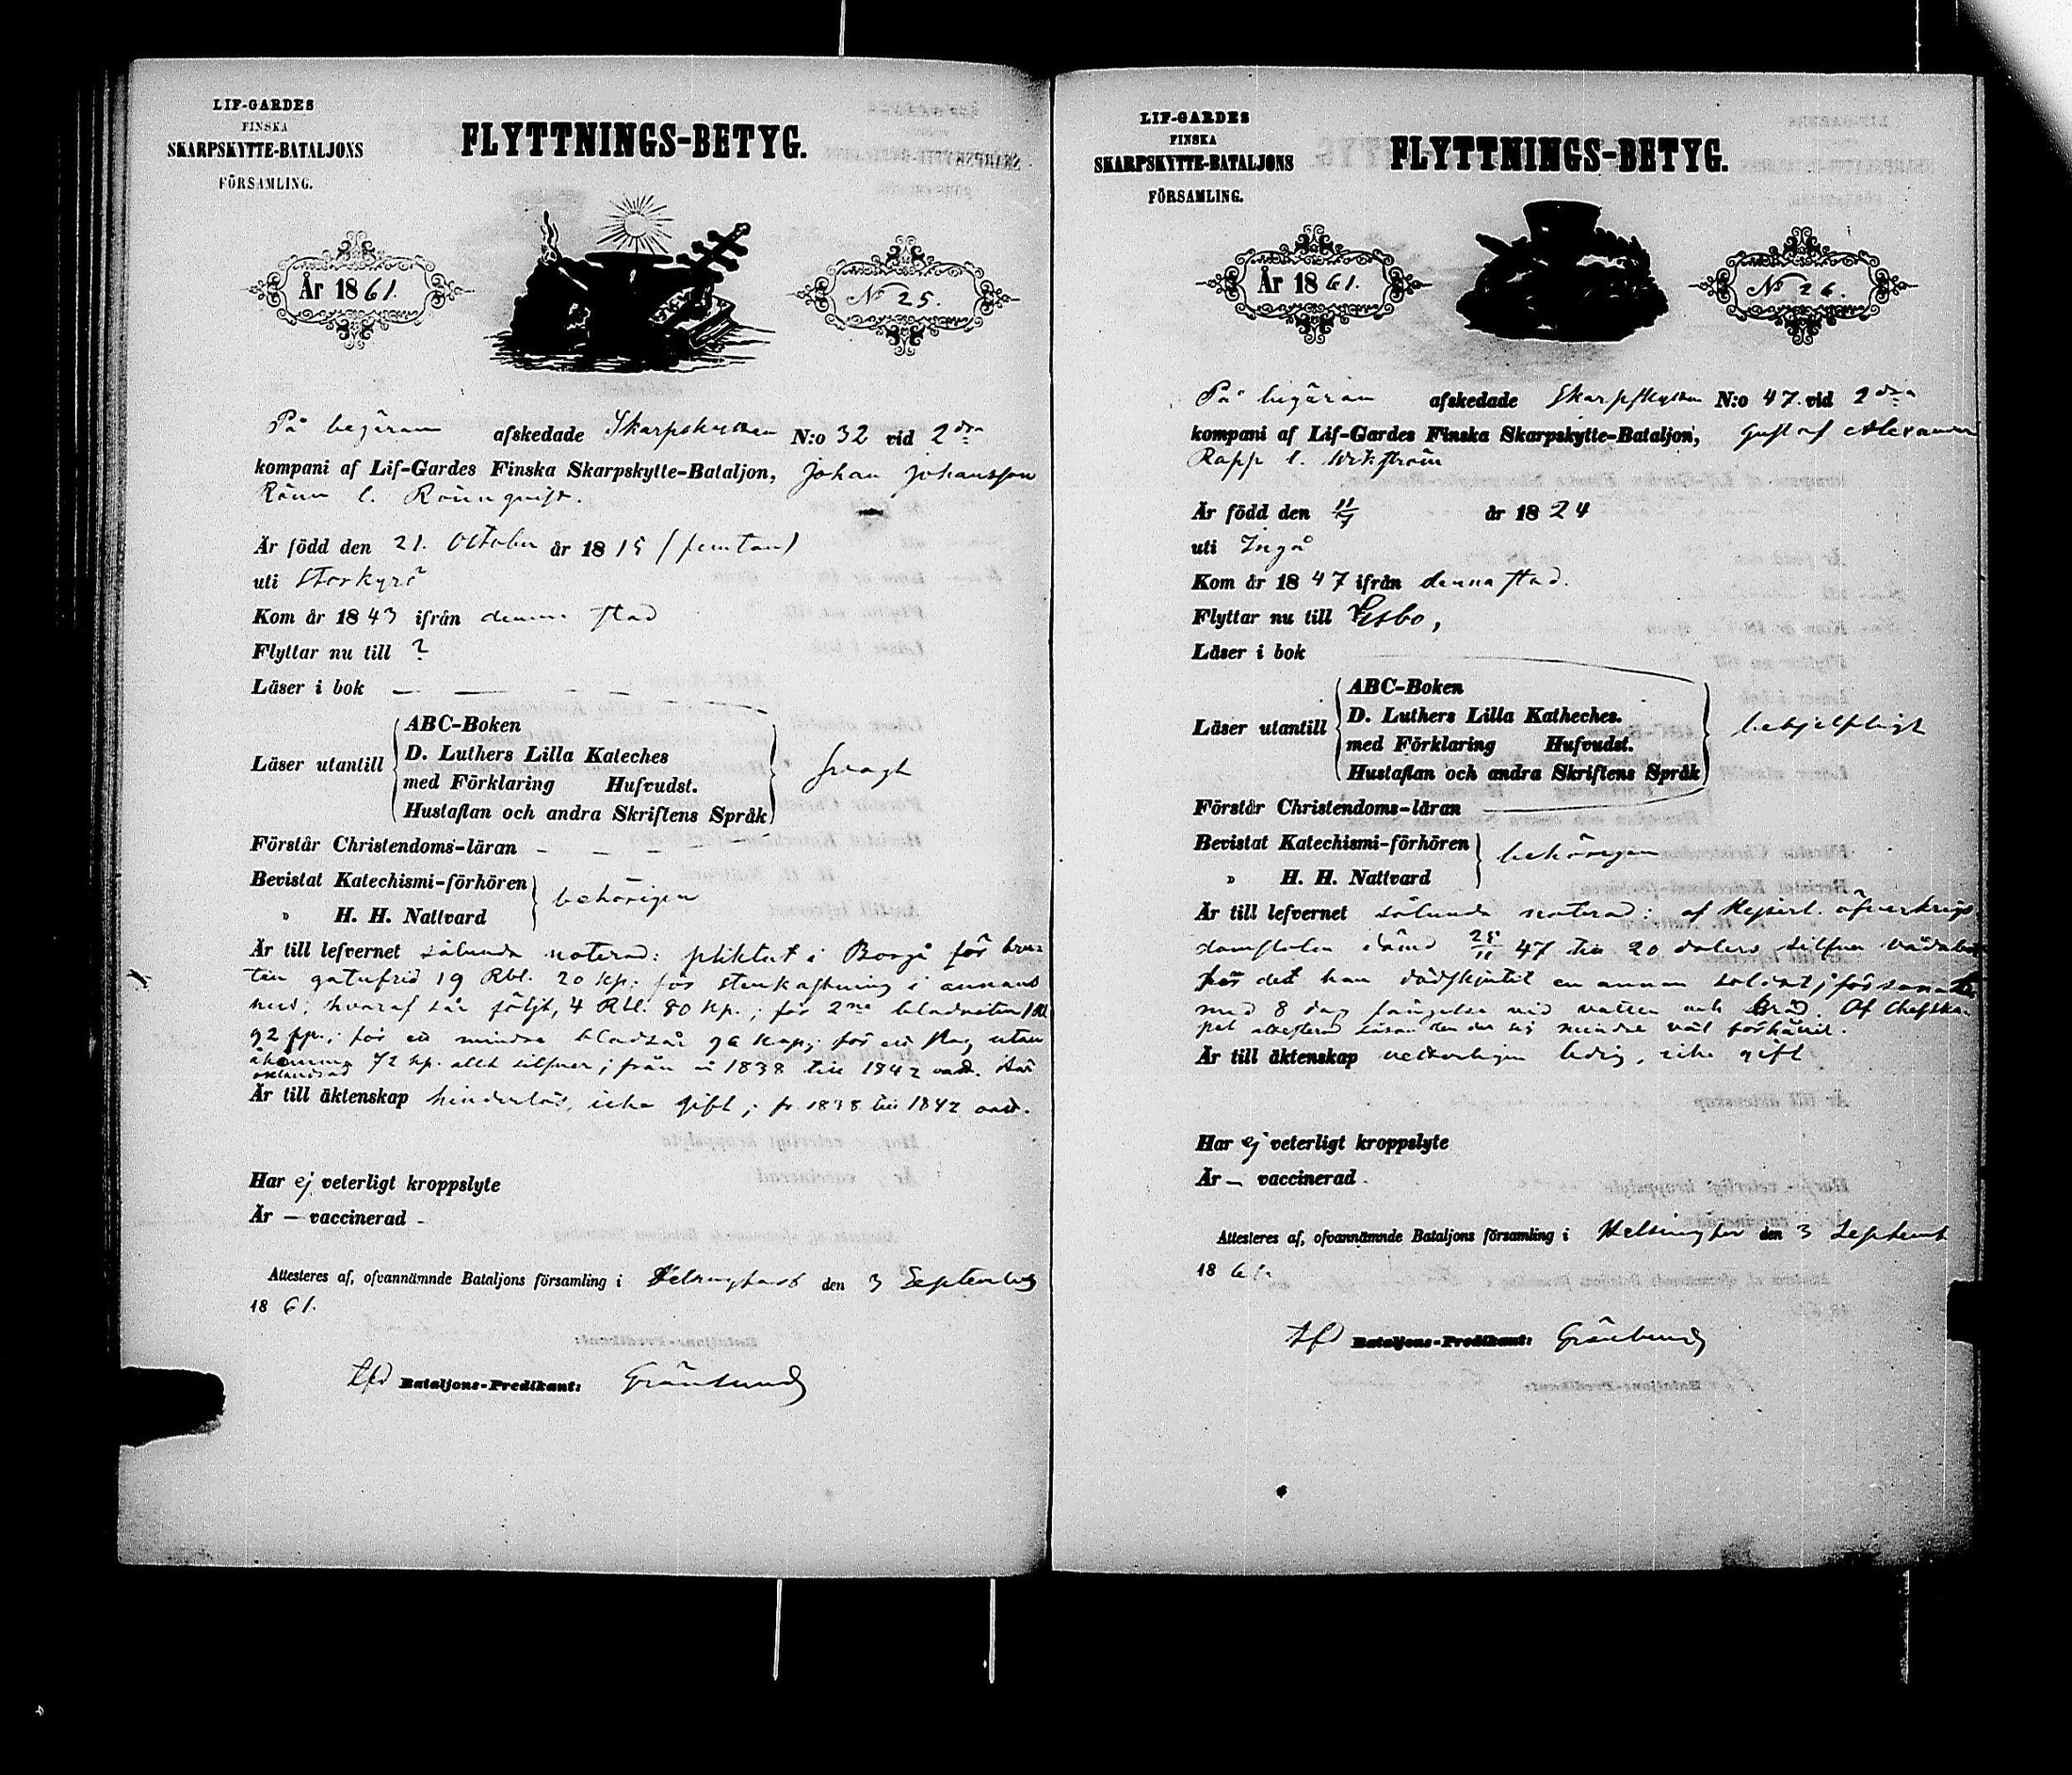 LIF-GARDES
FINSKA
SKARPSKYTTE-BATALJONS
FÖRSAMLING.
FLYTTNINGS-BETYG.
År 1861.
No 25.
På begäran afskedade Skarpskytten N:o 32 vid 2dra
kompani af Lif-Gardes Finska Skarpskytte-Bataljon, Johan Johansson
Rönn l. Rönnqvist.
Är född den 21. October år 1815 (femton)
uti Storkyro
Kom år 1843 ifrån denna stad
Flyttar nu till ?
Läser i bok — — — —
Läser utantill
ABC-Boken
D. Luthers Lilla Kateches
med Förklaring Hufvudst.
Hustaflan och andra Skriftens Språk
svagt
Förstår Christendoms-läran - - - -
Bevistat Katechismi-förhören
" H. H. Nattvard
behörigen
Är till lefvernet sålunda noterad: pliktat i Borgå för bru-
ten gatufrid 19 Rbl. 20 kp; för stenkastning i annans
hus, hvaraf sår följt, 4 Rbl. 80 kp.; för 2ne blodviten 1 Rbl
92 kp.; för ett mindre blodsår 96 kop; för ett slag utan
åkomma 72 kp. allt silfver; från 1838 till 1842
Är till äktenskap hinderlös, icke gift; fr. 1838 till 1842
Har ej veterligt kroppslyte
Är — vaccinerad -
Attesteres af, ofvannämnde Bataljons församling i Helsingfors den 3 September
1861.
Tfd Bataljons-Predikant: Grönlund
LIF-GARDES
FINSKA
SKARPSKYTTE-BATALJONS
FÖRSAMLING.
FLYTTNINGS-BETYG.
År 1861.
No 26.
På begäran afskedade Skarpskytten N:o 47. vid 2dra
kompani af Lif-Gardes Finska Skarpskytte-Bataljon, Gustaf Alexander
Rapp l. Wikström
Är född den 11/7 år 1824
uti Ingå
Kom år 1847 ifrån denna stad.
Flyttar nu till Esbo,
Läser i bok
Läser utantill
ABC-Boken
D. Luthers Lilla Katheches.
med Förklaring Hufvudst.
Hustaflan och andra Skriftens Språk
behjelpligt
Förstår Christendoms-läran
Bevistat Katechismi-förhören
" H. H. Nattvard
behörigen
Är till lefvernet sålunda noterad: af Kejserl. öfverkrigs
domstolen dömd 25/11 47 till 20 daler silfver vådabot
för det han dödskjutit en annan soldat;
med 8 dag fängelse vid vatten och bröd. Af Chefska-
pet attesterad såsom den der sig mindre väl förhållit.
Är till äktenskap vetterligen ledig, icke gift
Har ej veterligt kroppslyte
Är — vaccinerad.
Attesteres af, ofvannämnde Bataljons församling i Helsingfors den 3 September
1861.
Tfd Bataljons-Predikant: Grönlund